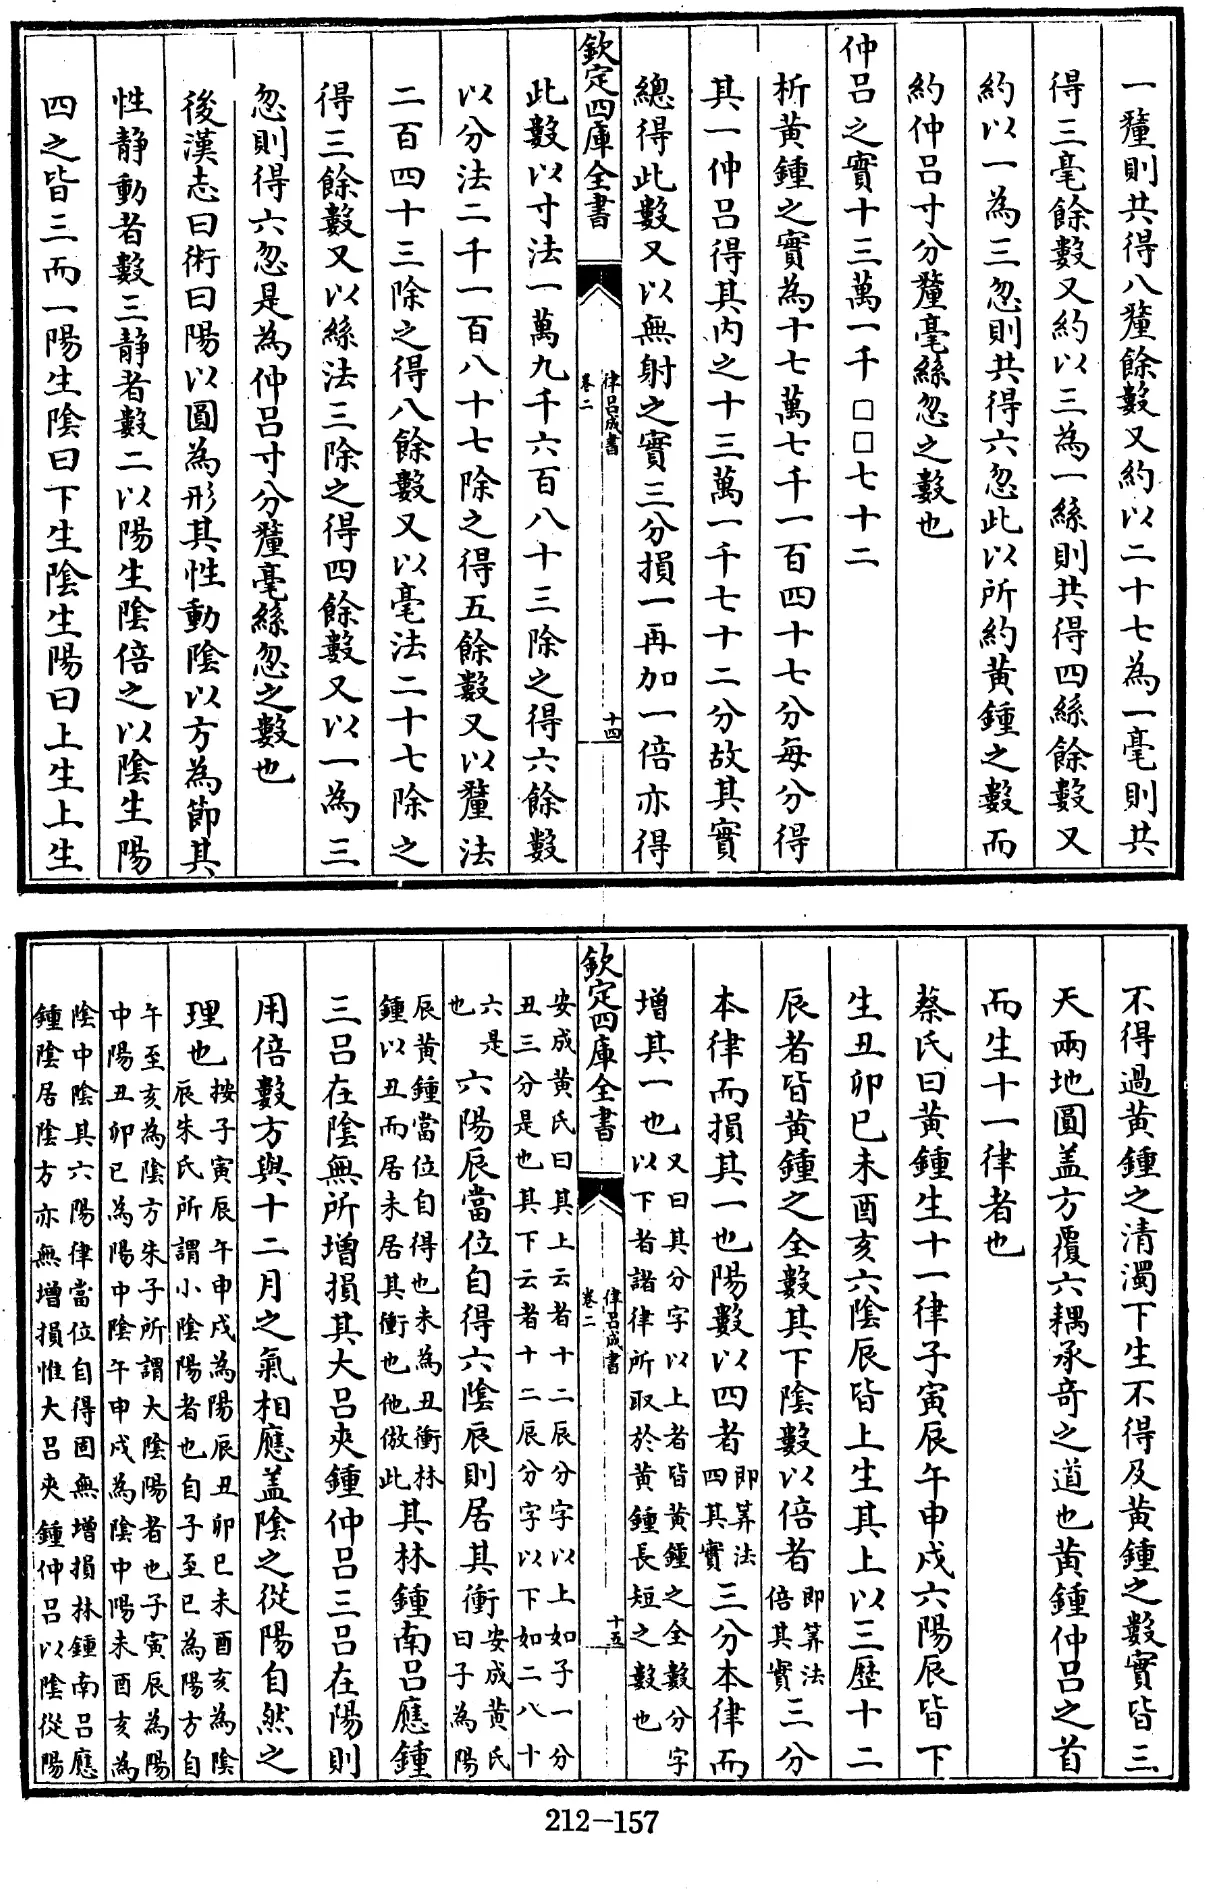 一釐則共得八釐餘數又約以二十七為一毫則共
得三毫餘數又約以三為一絲則共得四絲餘數又
約以一為三忽則共得六忽此以所約黃鍾之數而
約仲呂寸分釐毫絲忽之數也
仲呂之實十三萬一千□□七十二
析黃鍾之實為十七萬七千一百四十七分每分得
其一仲呂得其內之十三萬一千七十二分故其實
總得此數又以無射之實三分損一再加一倍亦得
欽定四庫全書
律呂成書
卷二
十四
此數以寸法一萬九千六百八十三除之得六餘數
以分法二千一百八十七除之得五餘數又以釐法
二百四十三除之得八餘數又以毫法二十七除之
得三餘數又以絲法三除之得四餘數又以一為三
忽則得六忽是為仲呂寸分釐毫絲忽之數也
後漢志曰術曰陽以圓為形其性動陰以方為節其
性靜動者數三靜者數二以陽生陰倍之以陰生陽
四之皆三而一陽生陰曰下生陰生陽曰上生上生
不得過黃鍾之清濁下生不得及黃鍾之數實皆三
天兩地圓盖方覆六耦承奇之道也黃鍾仲呂之首
而生十一律者也
蔡氏曰黃鍾生十一律子寅辰午申戌六陽辰皆下
生丑卯巳未酉亥六陰辰皆上生其上以三歷十二
辰者皆黃鍾之全數其下陰數以倍者即筭法倍其實三分
本律而損其一也陽數以四者即筭法四其實三分本律而
增其一也又曰其分字以上者皆黃鍾之全數分字以下者諸律所取於黃鍾長短之數也
欽定四庫全書
律呂成書
卷二
十五
安成黃氏曰其上云者十二辰分字以上如子一分丑三分是也其下云者十二辰分字以下如二八十
六是也六陽辰當位自得六陰辰則居其衝安成黃氏曰子為陽
辰黃鍾當位自得也未為丑衝林鍾以丑而居未居其衝也他倣此其林鍾南呂應鍾
三呂在陰無所增損其大呂夾鍾仲呂三呂在陽則
用倍數方與十二月之氣相應盖陰之從陽自然之
理也按子寅辰午申戌為陽辰丑卯巳未酉亥為陰辰朱氏所謂小陰陽者也自子至巳為陽方自
午至亥為陰方朱子所謂大陰陽者也子寅辰為陽中陽丑卯巳為陽中陰午申戌為陰中陽未酉亥為
陰中陰其六陽律當位自得固無增損林鍾南呂應鍾陰居陰方亦無增損惟大呂夾鍾仲呂以陰從陽
212-157